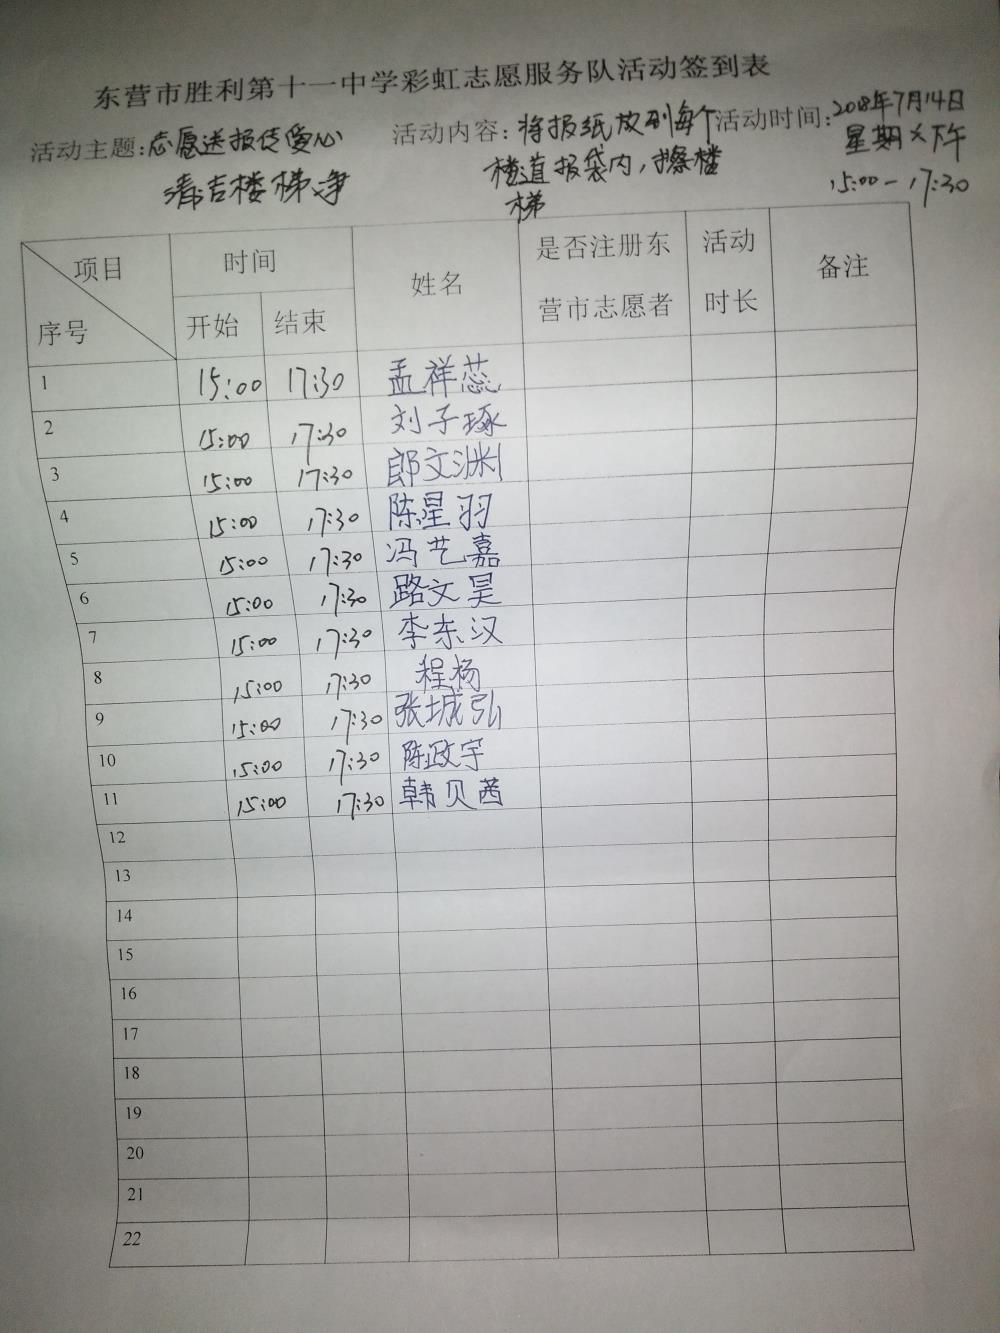 东营市胜利第十一中学彩虹志愿服务队活动签到表
活动主题:志愿送报传爱心 活动内容:将报纸放到每个 活动时间:2018年7月14日
清洁楼梯净 楼道报袋内,擦楼 星期六下午
梯 15:00-17:30
项目 时间 姓名 是否注册东 活动 备注
序号 开始 结束 营市志愿者 时长
1 15:00 17:30 孟祥蕊
2 15:00 17:30 刘子琢
3 15:00 17:30 郎文渊
4 15:00 17:30 陈星羽
5 15:00 17:30 冯艺嘉
6 15:00 17:30 路文昊
7 15:00 17:30 李东汉
8 15:00 17:30 程杨
9 15:00 17:30 张城弘
10 15:00 17:30 陈政宇
11 15:00 17:30 韩贝茜
12
13
14
15
16
17
18
19
20
21
22